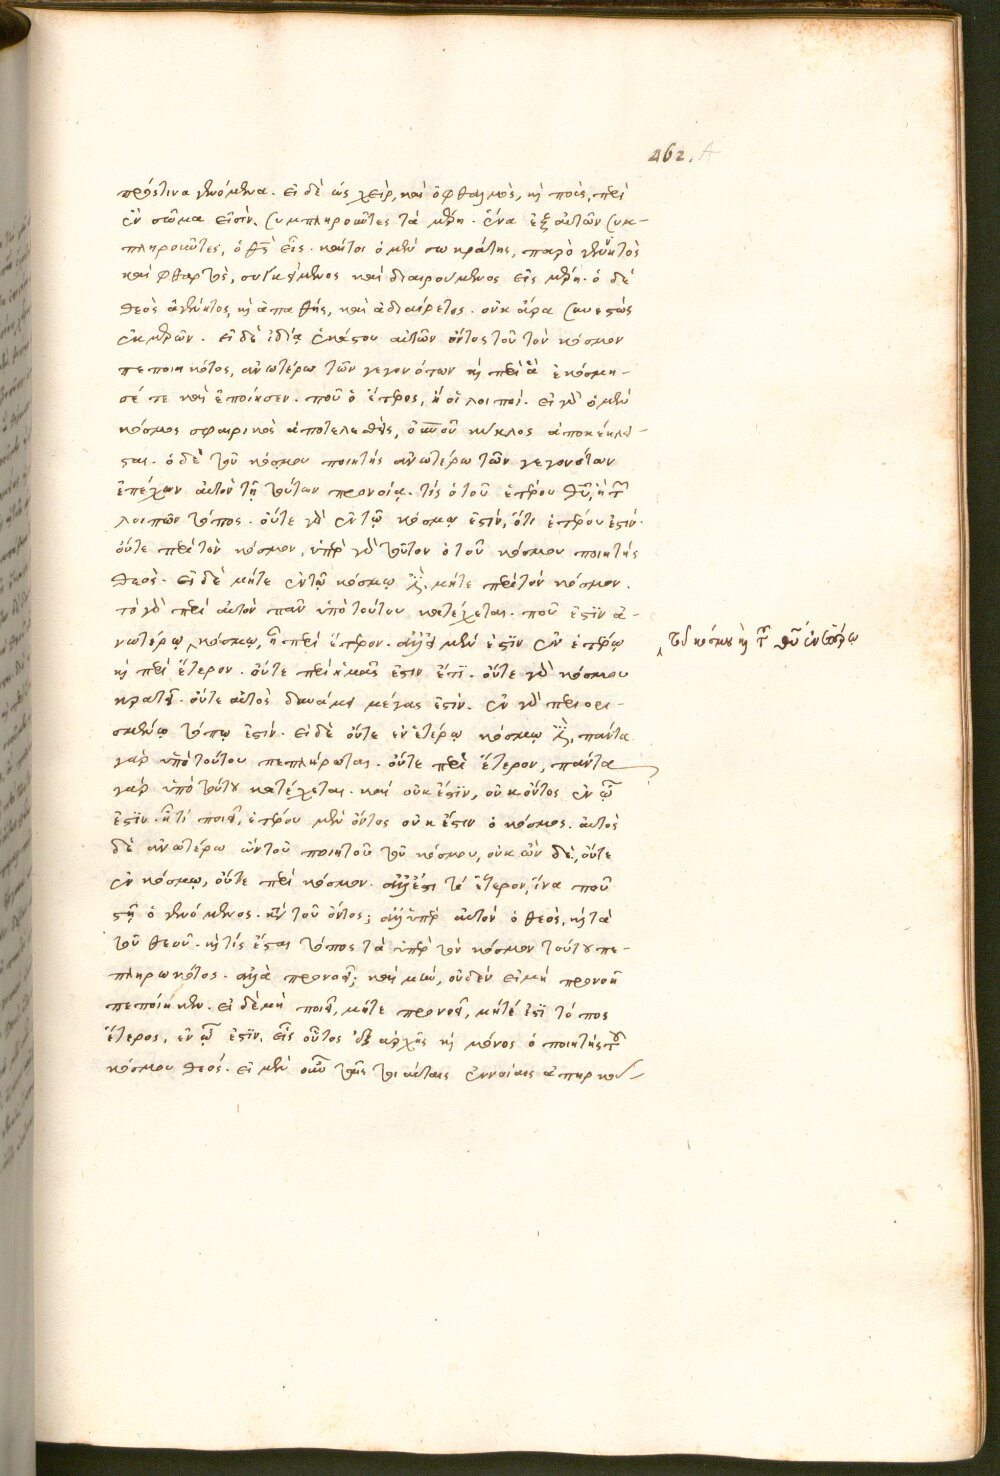 462. A
πρός τινα γινόμενα. εἰ δὲ ὡς χεὶρ, καὶ ὀφθαλμὸς, καὶ ποῦς, περὶ
ἓν σῶμα εἰσὶν, συμπληροῦντες τὰ μέρη. ἕνα ἐξ αὐτῶν συμ-
πληροῦντες, ὁ θεὸς εἷς. καίτοι ὁ μὲν σωκράτης, παρὸ γενητὸς
καὶ φθαρτὸς, συγκείμενος καὶ διαιρούμενος εἰς μέρη. ὁ δὲ
θεὸς ἀγένητος, καὶ ἀπαθὴς, καὶ ἀδιαίρετος. οὐκ ἄρα συνεστὼς
ἐκ μερῶν. εἰ δὲ ἰδίᾳ ἑκάστου αὐτῶν ὄντος τοῦ τὸν κόσμον
πεποιηκότος, ἀνωτέρω τῶν γεγονότων καὶ περὶ ἃ ἐκόσμη-
σέ τε καὶ ἐποίησεν. ποῦ ὁ ἕτερος, ἢ οἱ λοιποί. εἰ γὰρ ὁ μὲν
κόσμος σφαιρικὸς ἀποτελεσθεὶς, οὐρανοῦ κύκλοις ἀποκέκλει-
σται. ὁ δὲ τοῦ κόσμου ποιητὴς ἀνωτέρω τῶν γεγονότων
ἐπέχων αὐτὸν τῇ τούτων προνοίᾳ. τίς ὁ τοῦ ἑτέρου θεοῦ, ἢ τῶν
λοιπῶν τόπος. οὔτε γὰρ ἐν τῷ κόσμῳ ἐστὶν, ὅτι ἑτέρου ἐστίν.
οὔτε περὶ τὸν κόσμον, ὑπὲρ γὰρ τοῦτον ὁ τοῦ κόσμου ποιητὴς
θεός. εἰ δὲ μήτε ἐν τῷ κόσμῳ ἐστὶ, μήτε περὶ τὸν κόσμον.
τὸ γὰρ περὶ αὐτὸν πᾶν ὑπὸ τούτου κατέχεται. ποῦ ἐστιν ἀ-
νωτέρω, κόσμῳ, ἢ περὶ ἕτερον. ἀλλ' εἰ μὲν ἐστιν ἐν ἑτέρῳ
τοῦ κόσμου καὶ τοῦ θεοῦ ἐν ἑτέρῳ
καὶ περὶ ἕτερον. οὔτε περὶ ἡμᾶς ἐστιν ἔτι. οὔτε γὰρ κόσμου
κρατεῖ. οὔτε αὐτὸς δυνάμει μέγας ἐστίν. ἐν γὰρ περιορι-
σμένῳ τόπῳ ἐστίν. εἰ δὲ οὔτε ἐν ἑτέρῳ κόσμῳ ἐστὶ, πάντα
γὰρ ὑπὸ τούτου πεπλήρωται. οὔτε περὶ ἕτερον, πάντα
γὰρ ὑπὸ τούτου κατέχεται. καὶ οὐκ ἔστιν, οὐκ ὄντος ἐν ᾧ
ἐστιν. ἢ τί ποιεῖ, ἑτέρου μὲν ὄντος οὗ ἐστιν ὁ κόσμος. αὐτὸς
δὲ ἀνωτέρω ὢν τοῦ ποιητοῦ τοῦ κόσμου, οὐκ ὢν δὲ, οὔτε
ἐν κόσμῳ, οὔτε περὶ κόσμον. ἀλλ' ἔστι τι ἕτερον, ἵνα ποῦ
στῇ ὁ γενόμενος. κατὰ τοῦ ὄντος; ἀλλ' ὑπὲρ αὐτὸν ὁ θεὸς, καὶ τὰ
τοῦ θεοῦ. καὶ τίς ἔσται τόπος τὰ ὑπὲρ τὸν κόσμον τούτου πε-
πληρωκότος. ἀλλὰ προνοεῖ; καὶ μὴν, οὐδὲν εἰ μὴ προνοεῖ
πεποίηκεν. εἰ δὲ μὴ ποιεῖ, μήτε προνοεῖ, μήτέ ἐστι τόπος
ἕτερος, ἐν ᾧ ἐστιν. εἷς οὗτος ἐξ ἀρχῆς καὶ μόνος ὁ ποιητὴς τοῦ
κόσμου θεός. εἰ μὲν οὖν ταῖς τοιαύταις ἐννοίαις ἀπηρκού-